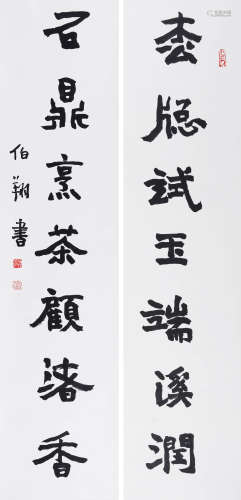 枩牕試玉端溪潤
石鼎烹茶顧渚香
伯翔書